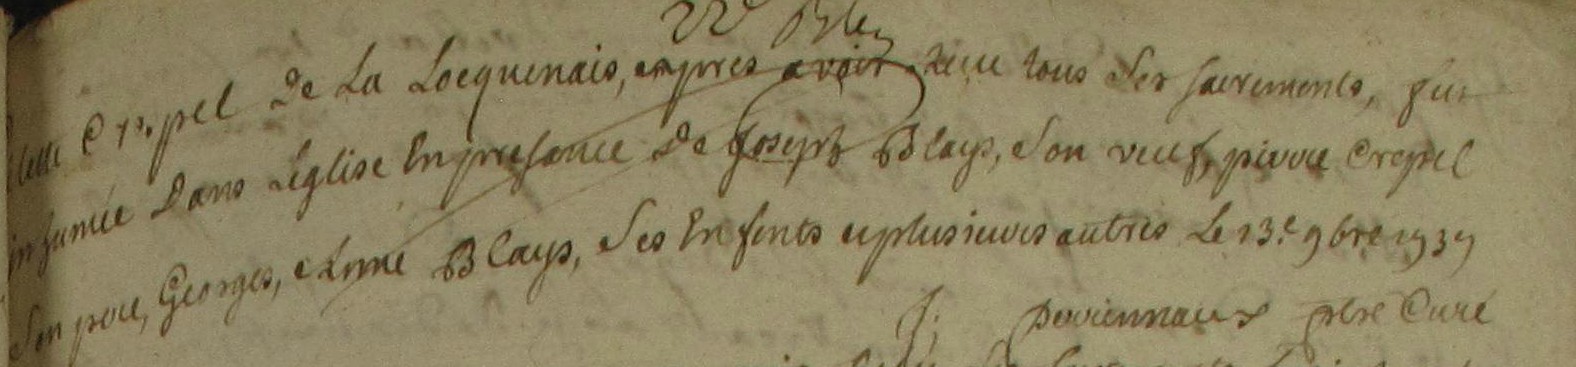 Crespel De La Locquenais, apres avoir Receu tous Ses sacrements, fut
inhumée Dans L'église En presance De Joseph Blays, Son veuf, pierre Crepel
Son pere, Georges, et Anne Blays, Ses Enfents et plusieurs autres Le 13.e 9bre 1737
J: perriennaux ptre Curé